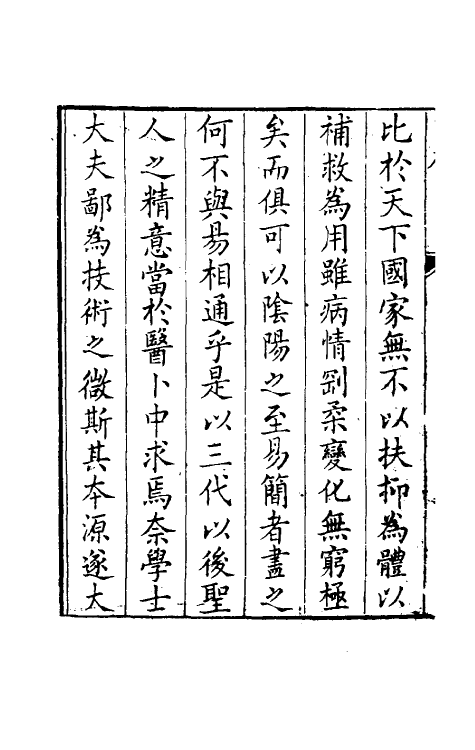 比於天下國家無不以扶抑為體以
補救為用雖病情剛柔變化無窮極
矣而俱可以陰陽之至易簡者盡之
何不與易相通乎是以三代以後聖
人之精意當於醫卜中求焉奈學士
大夫鄙為技術之微斯其本源遂大